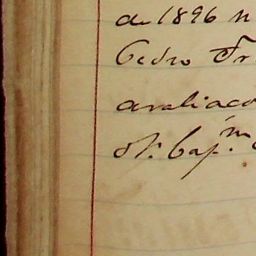 de 1896 n
Pedro Fr
avaliaco
St. Cap.m